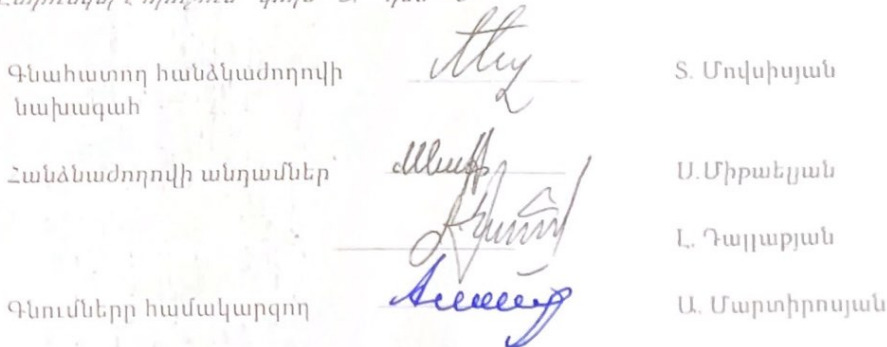 Գնահատող հանձնաժողովի Տ. Մովսիսյան
նախագահ
Հանձնաժողովի անդամներ Ս.Միքաելյան
Լ. Դալլաքյան
Գնումները համակարգող Ա. Մարտիրոսյան